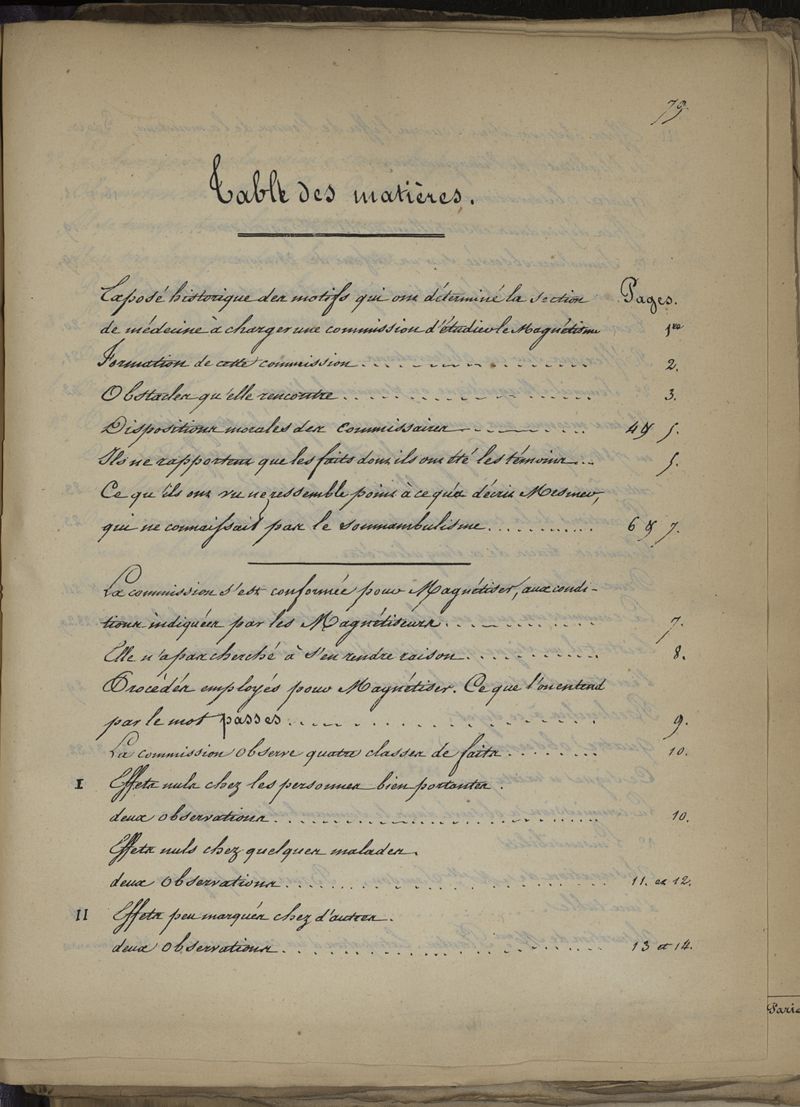 79.
Table des matières.
Exposé historique des motifs qui ont déterminé la section Pages.
de médecine à charger une commission d'étudier le Magnétisme 1re
Formation de cette commission 2.
Obstacles qu'elle rencontre 3.
Dispositions morales des Commissaires 4 & 5.
Ils ne rapportent que les faits dont ils ont été les témoins 5.
Ce qu'ils ont vu ne ressemble point à ce qu'a décrit Mesmer,
qui ne connaissait pas le somnambulisme 6 & 7.
La commission s'est conformée pour Magnétiser, aux condi-
tions indiquées par les Magnétiseurs 7.
Elle n'a pas cherché à s'en rendre raison 8.
Procédés employés pour Magnétiser. Ce que l'on entend
par le mot passes 9.
La commission observe quatre classes de faits 10.
I Effets nuls chez les personnes bien portantes.
deux observations 10.
Effets nuls chez quelques malades.
deux observations 11. et 12.
II Effets peu marqués chez d'autres.
deux observations 13 et 14.
Paris